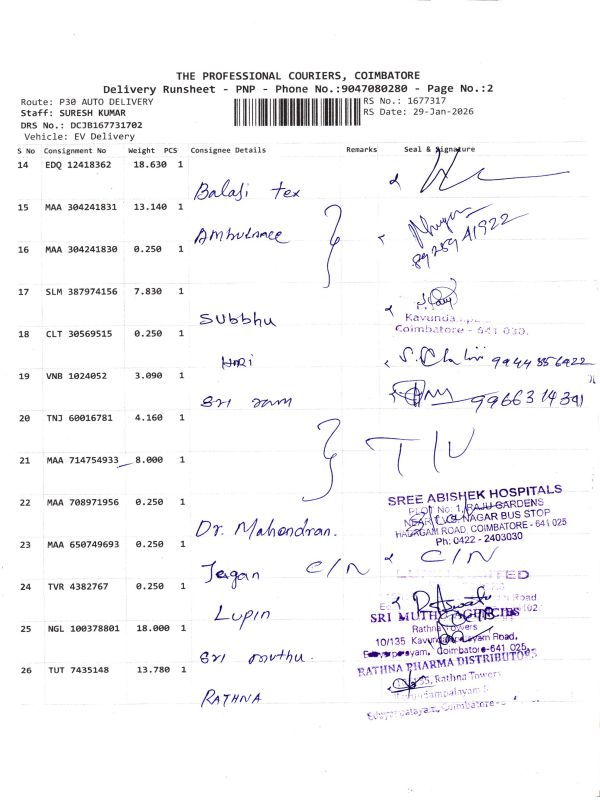 THE PROFESSIONAL COURIERS, COIMBATORE
Delivery Runsheet - PNP - Phone No.:9047080280 - Page No.:2
Route: P30 AUTO DELIVERY
RS No.: 1677317
Staff: SURESH KUMAR
RS Date: 29-Jan-2026
DRS No.: DCJB167731702
Vehicle: EV Delivery
S No Consignment No Weight PCS Consignee Details Remarks Seal & Signature
14 EDQ 12418362 18.630 1
Balaji tex
15 MAA 304241831 13.140 1
Ambulnace
16 MAA 304241830 0.250 1
17 SLM 387974156 7.830 1
Subbhu
Coimbatore - 641 030.
18 CLT 30569515 0.250 1
HARI 9944856922
19 VNB 1024052 3.090 1
Sri ram 9966314391
20 TNJ 60016781 4.160 1
21 MAA 714754933 8.000 1
22 MAA 708971956 0.250 1
SREE ABISHEK HOSPITALS
PLOT No: 1, RAJU GARDENS
NAGAR BUS STOP
ROAD, COIMBATORE - 641 025
Ph: 0422 - 2403030
Dr. Mahendran.
23 MAA 650749693 0.250 1
Jagan C/N C/N
24 TVR 4382767 0.250 1
Lupin
25 NGL 100378801 18.000 1
SRI MUTHU AGENCIES
Rathna Towers
10/135 Kavundampalayam Road,
Coimbatore-641 025.
Sri muthu.
26 TUT 7435148 13.780 1
RATHNA PHARMA DISTRIBUTORS
Rathna Towers
Coimbatore
RATHNA